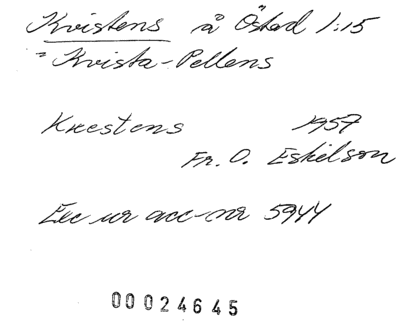 Kvistens å Östad 1:15
= Kvista-Pellens
Kneestens 1957
Fr. O. Eskilson
Exc ur acc-nr 5944
00024645